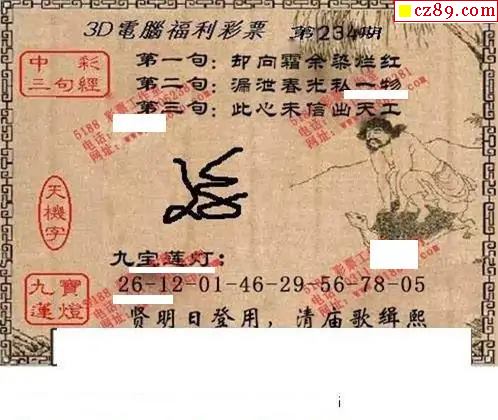 cz89.com
3D電腦福利彩票 第234期
中彩
三句經
第一句：却向霜余染烂红
第二句：漏泄春光私一物
第三句：此心未信出天工
天機字
九宝莲灯：
九寶蓮燈
26-12-01-46-29-56-78-05
贤明日登用，清庙歌缉熙
i